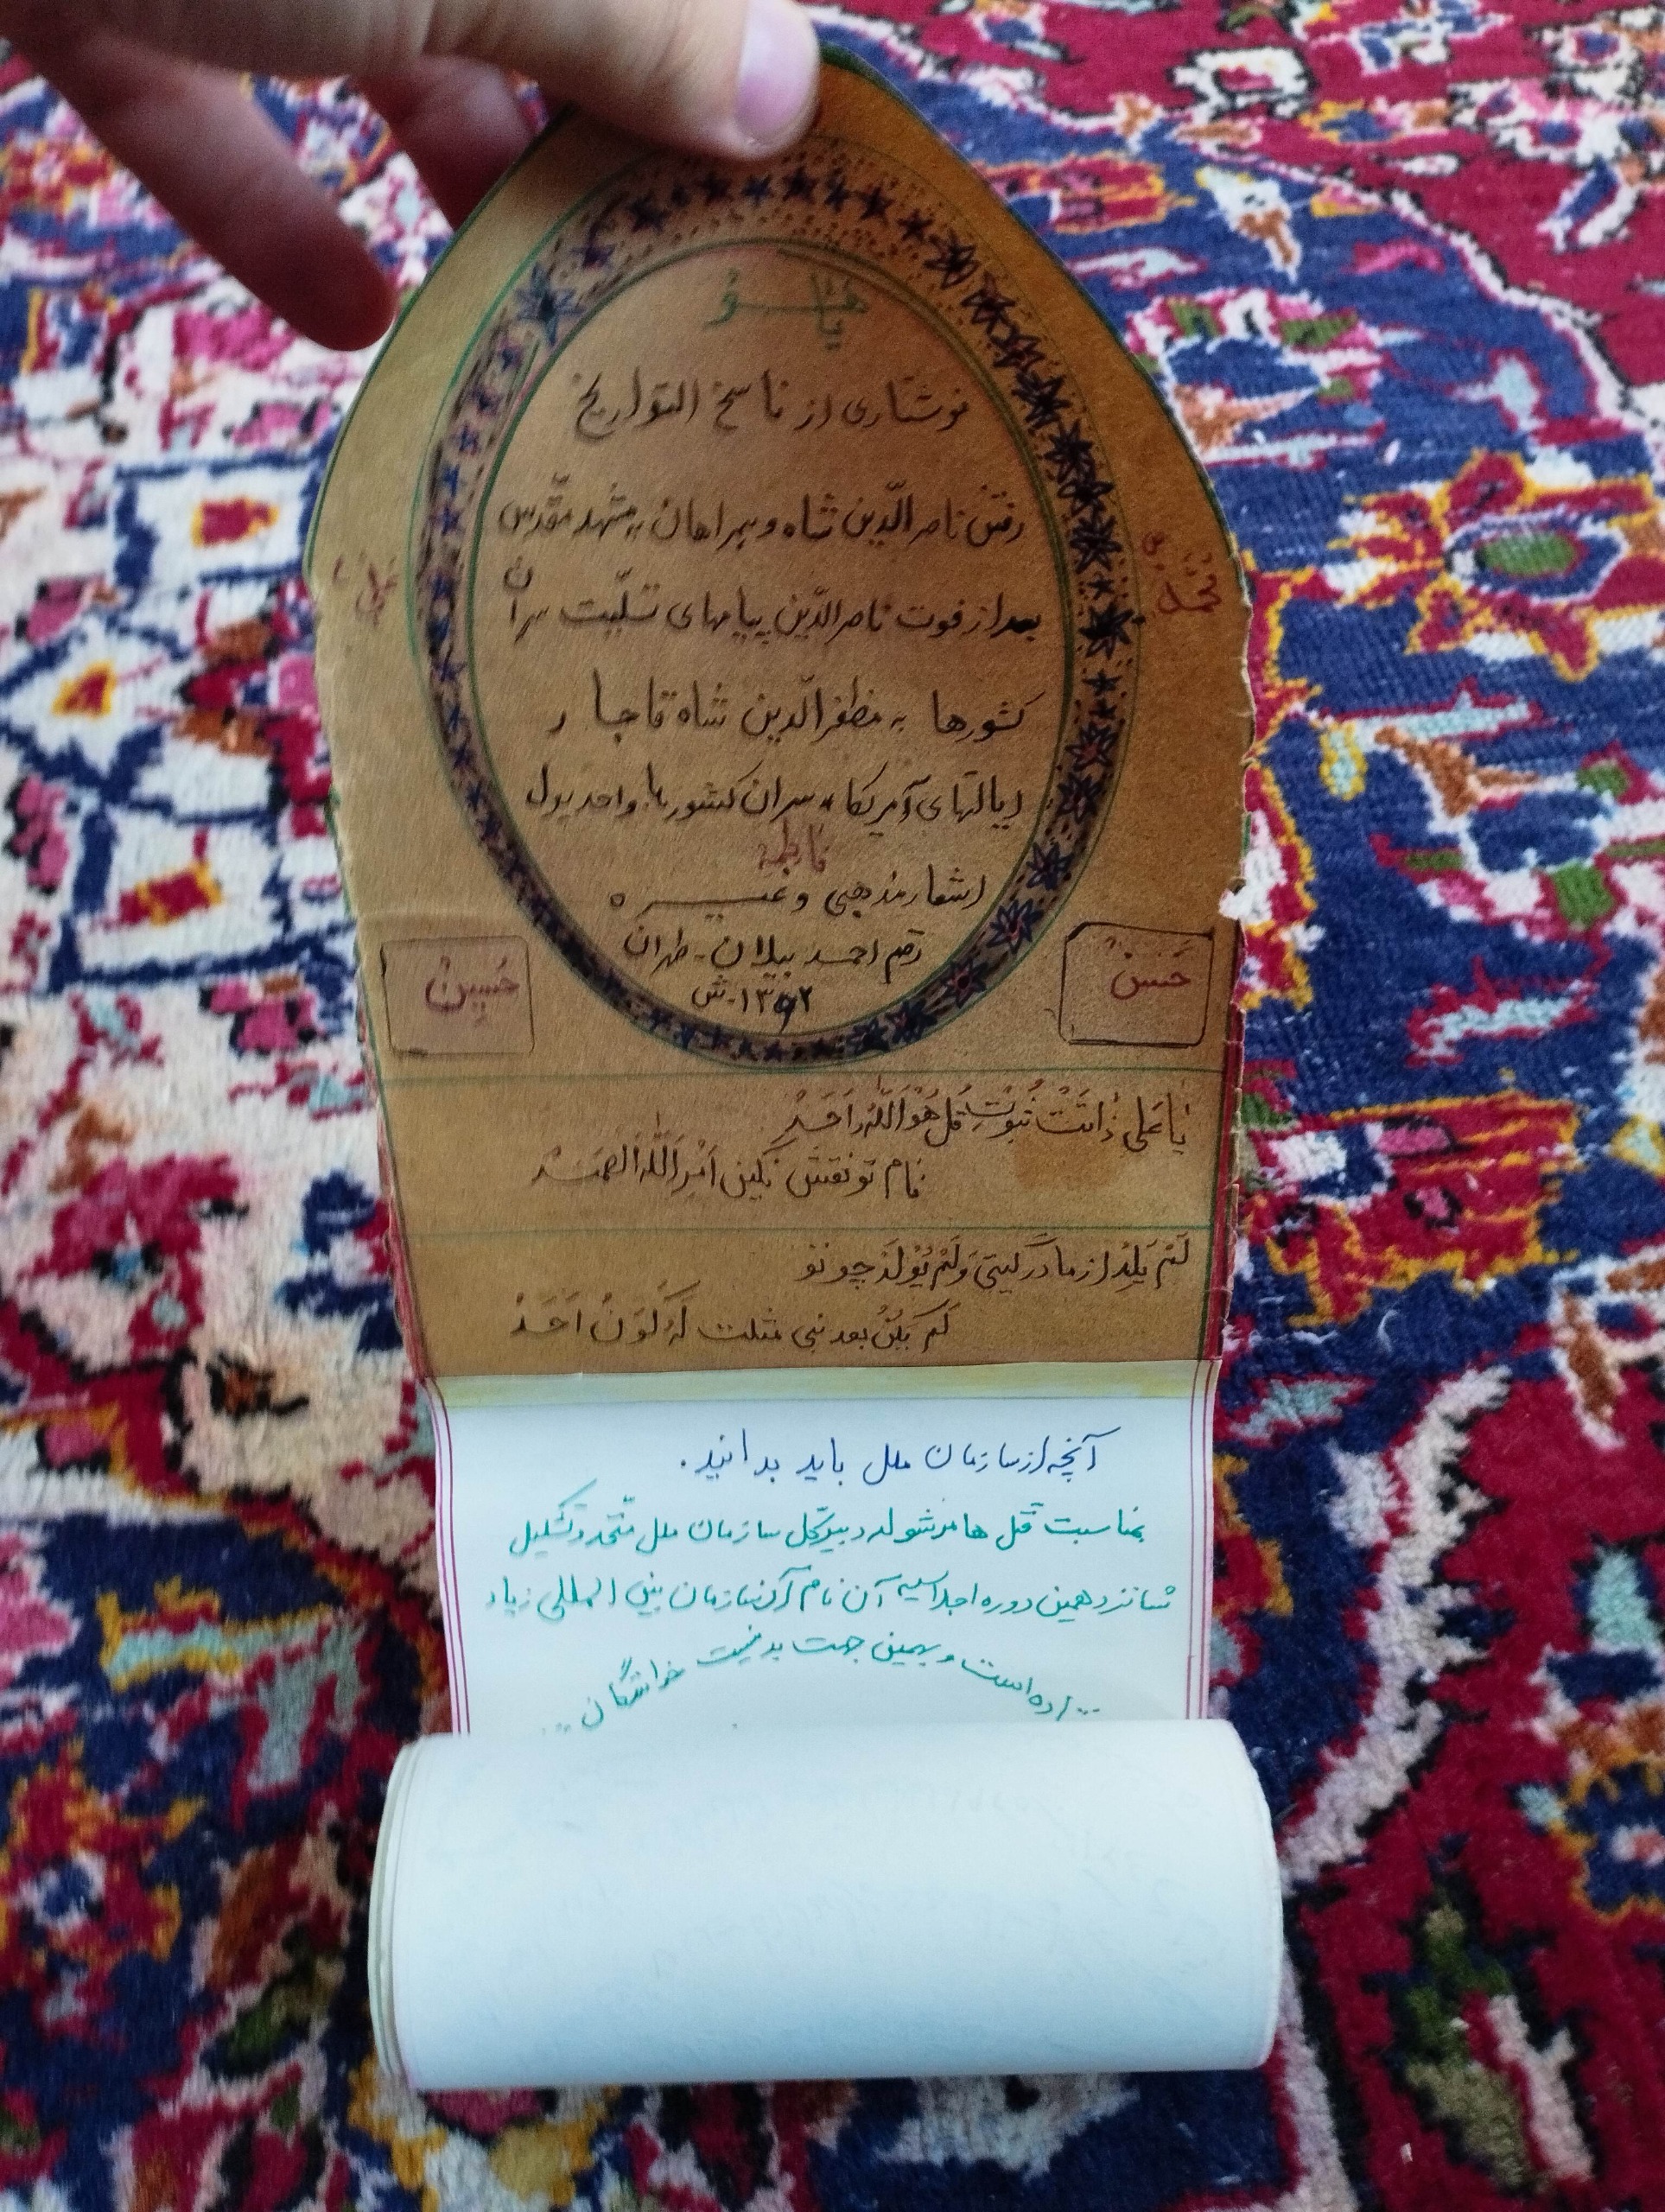 هو
یا
نوشتاری از ناسخ التواریخ
رفتن ناصرالدّین شاه و همراهان به مشهد مقدّس
بعد از فوت ناصرالدّین پیامهای تسلیّت سران
کشورها به مظفرالدّین شاه قاجار
ایالتهای آمریکا، سران کشورها، واحد پول
فاطمه
اشعار مذهبی و غیره
رقم احمد بیلان - طهران
۱۳۵۲ - ش
محمّد ص
علی ع
حَسَن
حُسِین
یا عَلی ذاتَتْ ثُبوُتِ قُل هُوَ اللهُ اَحَدْ
نام تو نقش نگین اَمْرِ اَللهُ الصَمَدْ
لَمْ یَلِدْ از مادَر گیتی وَلَمْ یُوْلَدْ چو تو
لَم یَکُنْ بعد نبی مثلت لَهُ کُوَنْ اَحَدْ
آنچه از سازمان ملل باید بدانید.
بمناسبت قتل هامرشولد دبیرکّل سازمان ملل متّحد و تشکیل
شانزدهمین دوره اجلاسیه آن نام آن سازمان بین المللی زیاد
... است و بهمین جهت بد نیست خوانندگان ...